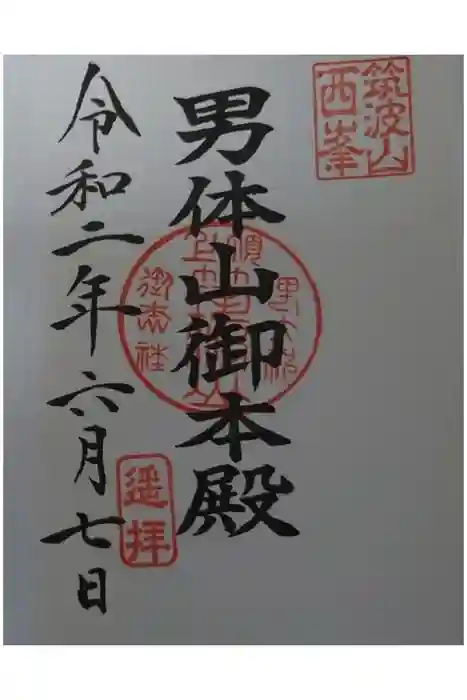 筑波山
西峯
男体山御本殿
遥拝
令和二年六月七日